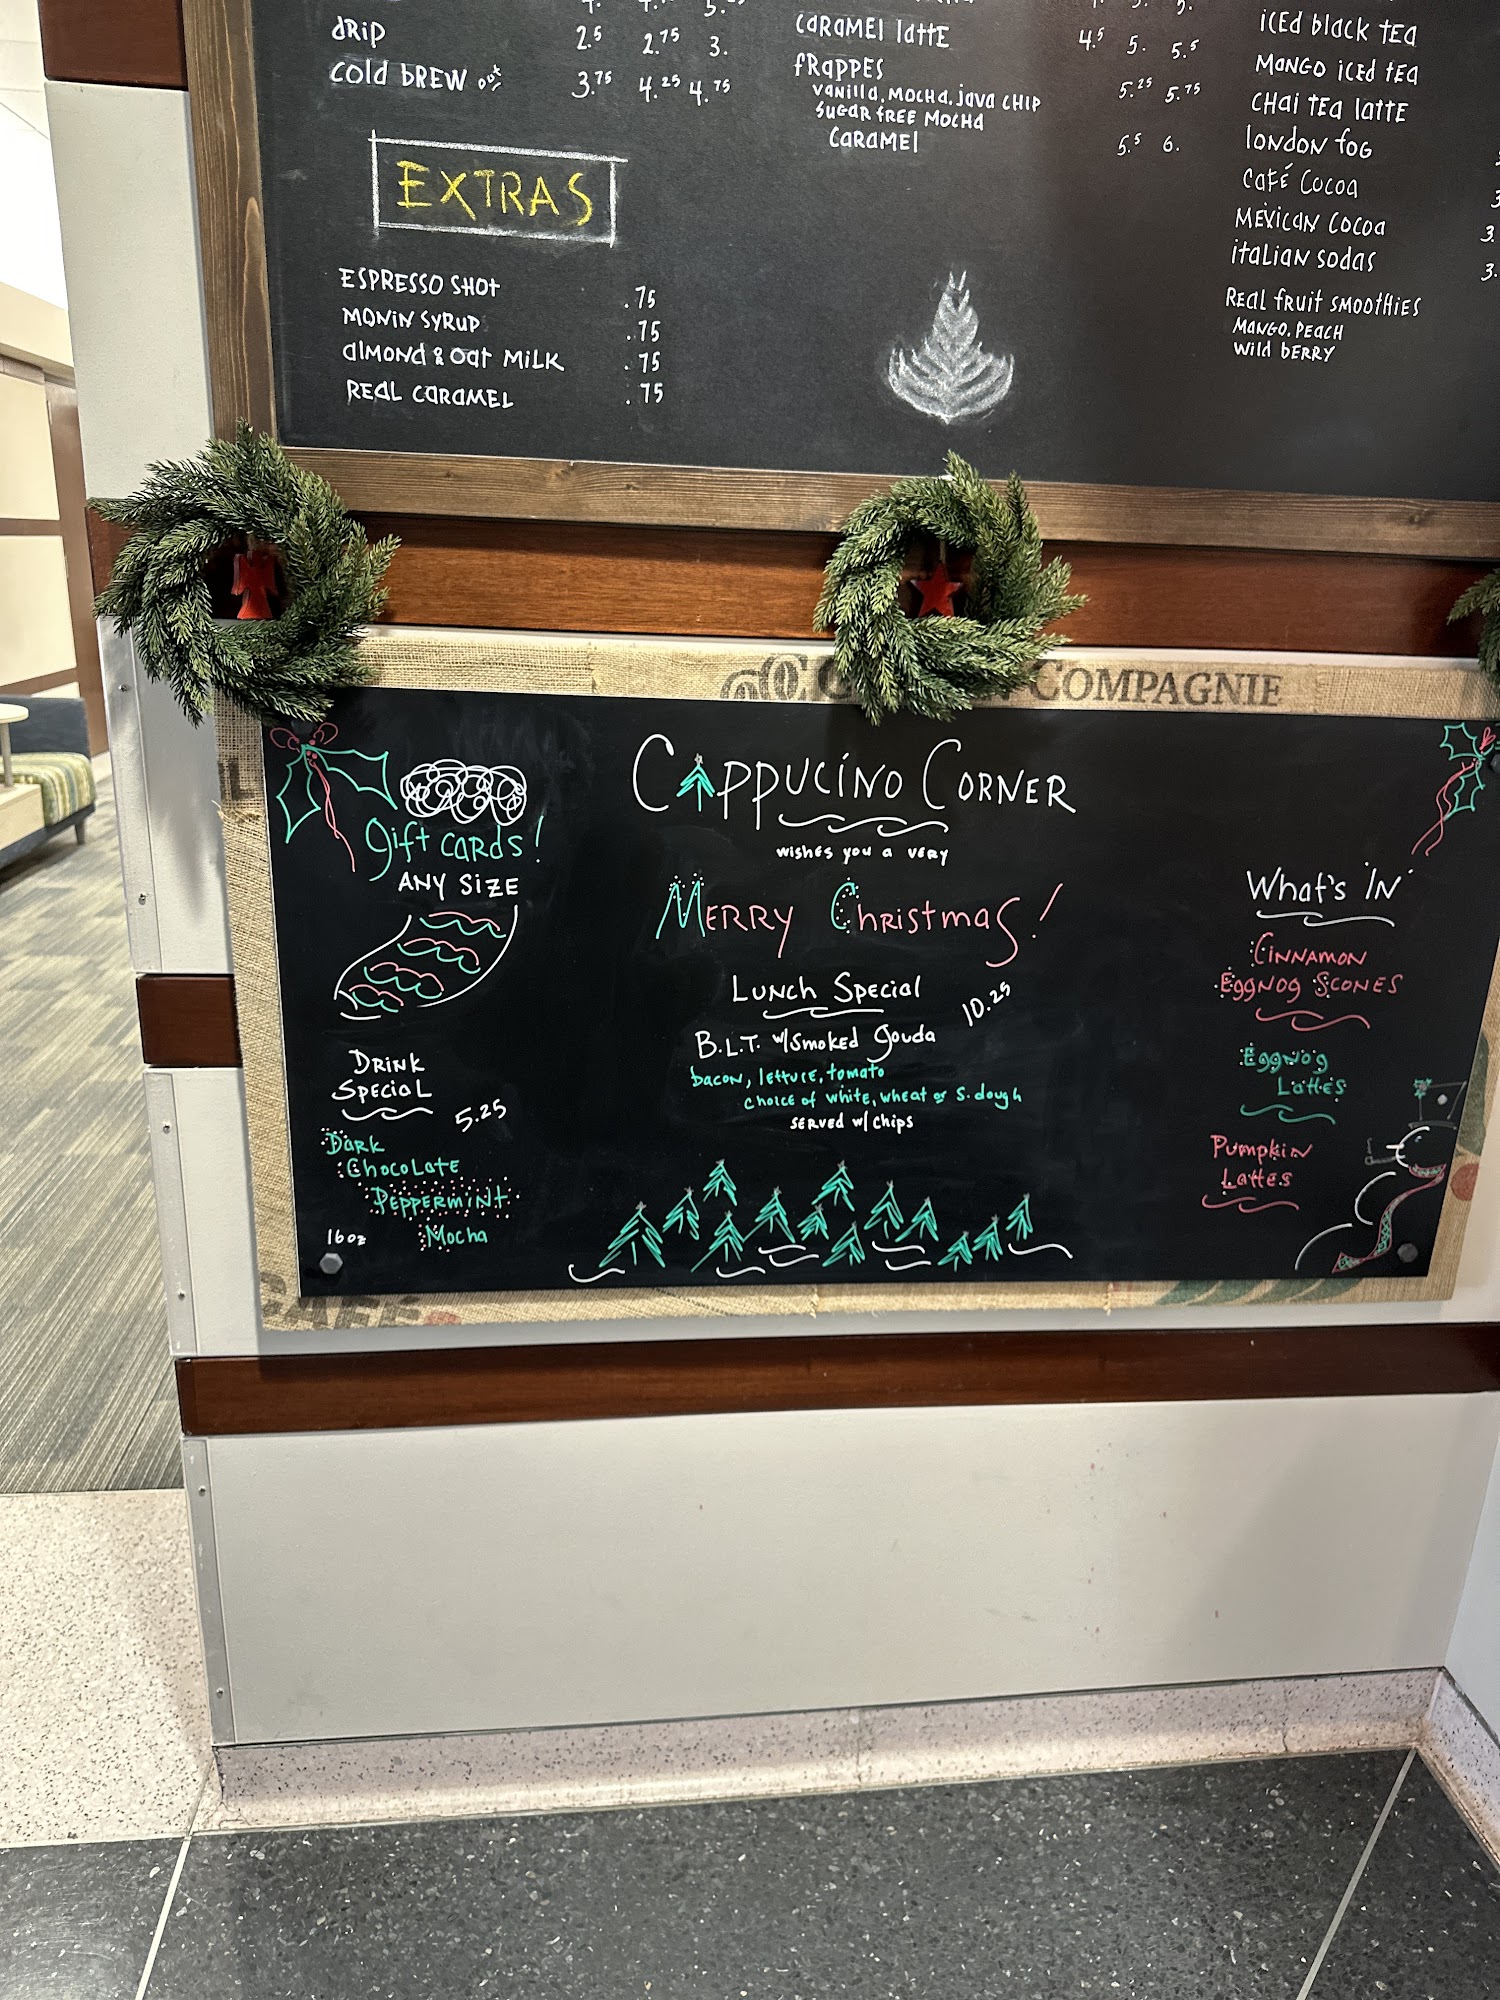 drip 2.5 2.75 3.
cold brew out 3.75 4.25 4.75
EXTRAS
ESPRESSO SHOT .75
MONIN SYRUP .75
almond & oat MILK .75
REAL CARAMEL .75
caramel latte 4.5 5. 5.5
frappes
vanilla, mocha, java chip 5.25 5.75
sugar free mocha
caramel 5.5 6.
iced black tea
mango iced tea
chai tea latte
london fog
café cocoa
mexican cocoa 3.
italian sodas 3.
Real fruit smoothies
mango, peach
wild berry
COMPAGNIE
Gift cards!
ANY SIZE
DRINK
SPECIAL
5.25
DARK
CHOCOLATE
PEPPERMINT
Mocha
16oz
CAPPUCINO CORNER
wishes you a very
MERRY Christmas!
LUNCH SPECIAL
10.25
B.L.T. w/smoked gouda
bacon, lettuce, tomato
choice of white, wheat or s.dough
served w/ chips
What's IN
CINNAMON
EGGNOG SCONES
Eggnog
Lattes
Pumpkin
Lattes
CAFÉ